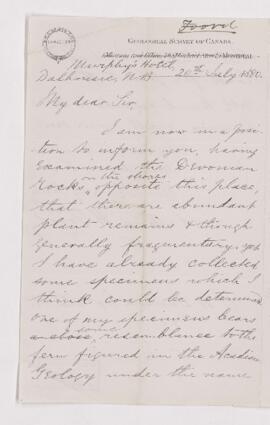 Foord
GEOLOGICAL SURVEY OF CANADA.
Murphy's Hotel,
Dalhousie, N.B. 20th July 1880.
My dear Sir,
I am now in a posi
tion to inform you, having
examined the Devonian
on the shores
Rocks opposite this place,
that there are abundant
plant remains & though
generally fragmentary, yet
I have already collected
some specimens which I
think could be determined
one of my specimens bears
some
resemblance to the
fern figured in the Acadian
Geology under the name